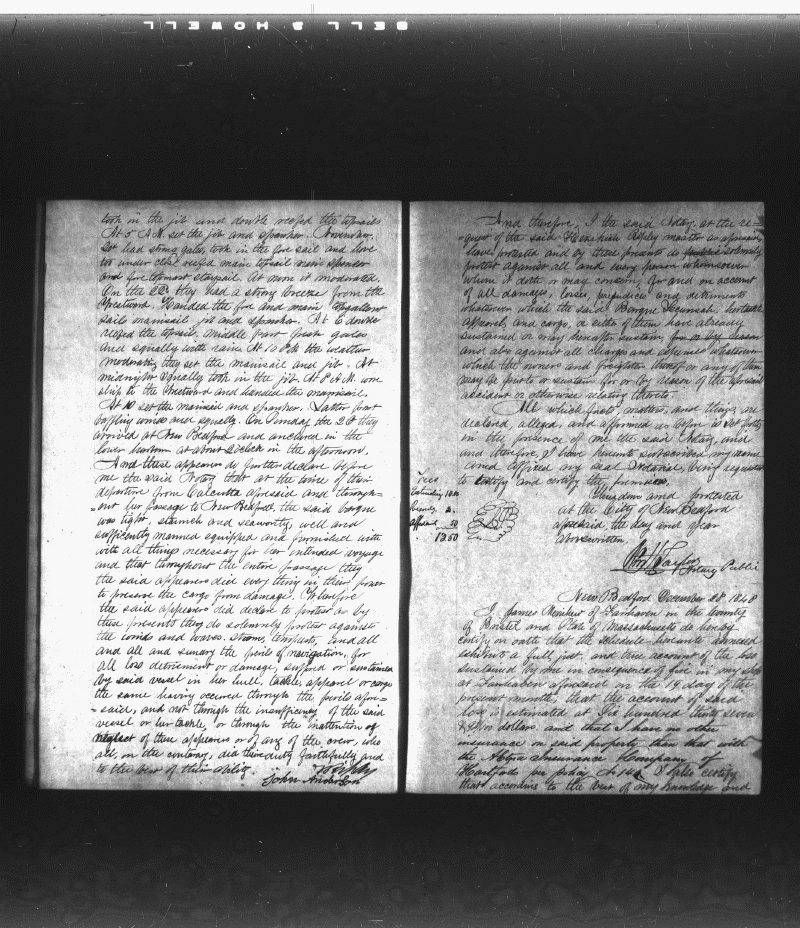 BELL & HOWELL
took in the jib and double reefed the topsails
At 5 A.M. set the jib and spanker. November
21st had strong gales, took in the fore sail and hove
to under close reefed main topsail main spencer
and fore topmast staysail. At noon it moderated.
On the 22d they had a strong breeze from the
Westward. Handed the fore and main topgallant
sails mainsail jib and spanker. At 6 double
reefed the topsail. Middle part fresh gales
and squally with rain. At 10 P.M. the weather
moderating they set the mainsail and jib. At
midnight squally took in the jib. At 8 A.M. wore
ship to the Westward and handed the mainsail.
At 10 set the mainsail and spanker. Latter part
baffling winds and squally. On Sunday the they
arrived at New Bedford and anchored in the
lower harbor at about 2 o'clock in the afternoon.
And these appearers do further declare before
me the said Notary that at the time of their
departure from Calcutta aforesaid and through=
=out her passage to New Bedford, the said barque
was tight, staunch and seaworthy, well and
sufficiently manned equipped and furnished with
with all things necessary for her intended voyage
and that throughout the entire passage they
the said appearers did every thing in their power
to preserve the cargo from damage. Wherefore
the said appearers did declare to protest as by
these presents they do solemnly protest against
the winds and waves, storms, tempests, and all
and all and sundry the perils of navigation, for
all loss detriment or damage, suffered or sustained
by said vessel in her hull, tackle, apparel or cargo
the same having occured through the perils afore=
=said, and not through the insufficiency of the said
vessel or her tackle, or through the inattention or
neglect of these appearers or of any of the crew, who
all, on the contrary, did their duty faithfully and
to the best of their ability.
John Anderson
And therefore, I the said Notary, at the re=
=quest of the said Hezekiah Ripley master as aforesaid
have protested and by these presents do solemnly
protest against all and every person whomsoever
whom it doth or may concern, for and on account
of all damages, losses, prejudices and detriments
whatever which the said Barque Tecumseh, her tackle
apparel and cargo, or either of them have already
sustained or may hereafter sustain for or by reason
and also against all charges and expenses whatever
which the owners and freighters thereof or any of them
may be put to or sustain for or by reason of the aforesaid
accident or otherwise relating thereto.
All which facts, matters, and things, were
declared, alleged, and affirmed as before is set forth
in the presence of me the said Notary, and
and therefore I have hereunto subscribed my name
and affixed my seal Notarial, being requested
to certify and certify the premises.
Fees
Extending 10.00
2.
.50
12.50
Thus done and protested
at the City of New Bedford
aforesaid, the day and year
abovewritten.
Wm H Taylor
Notary Public
New Bedford December 28 1848
I, James of Fairhaven in the County
of Bristol and State of Massachusetts do hereby
certify on oath that the schedule hereunto annexed
exhibits a full, just, and true account of the loss
sustained by me in consequence of fire in my
at Fairhaven aforesaid on the 19 day of the
present month, that the account of said
loss is estimated at Six hundred thirty seven
dollars. and that I have no other
insurance on said property than that with
the Insurance Company of
Hartford per policy No 144. I further certify
that according to the best of my knowledge and